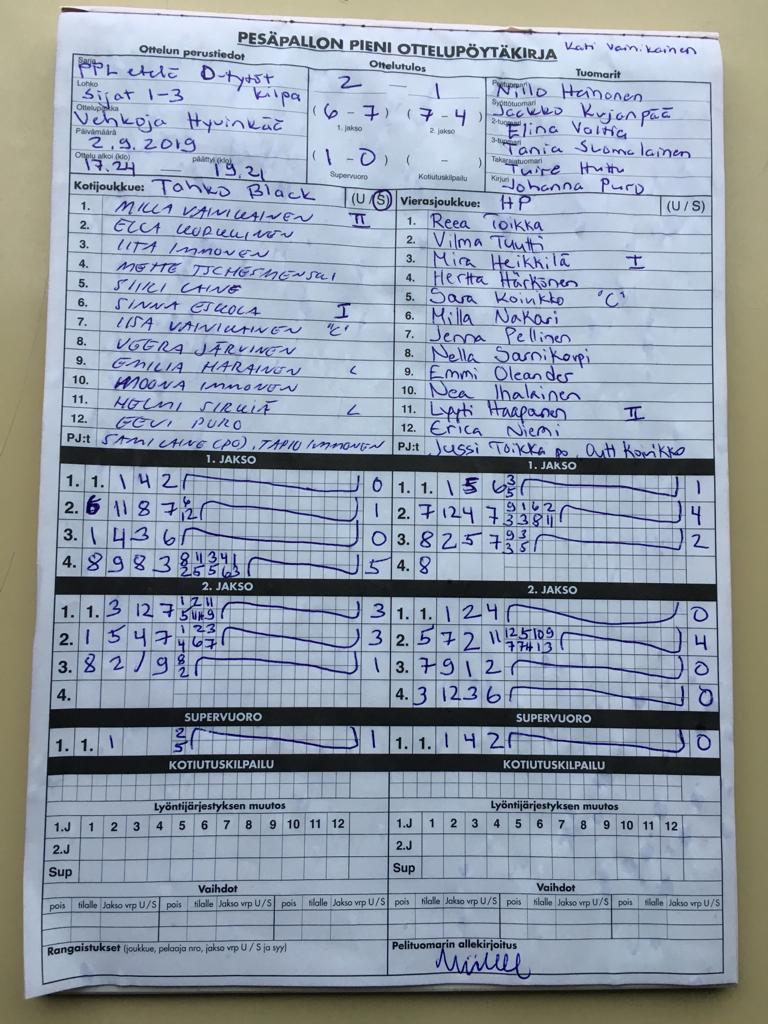 PESÄPALLON PIENI OTTELUPÖYTÄKIRJA
Kati Vainikainen
Ottelun perustiedot
Sarja
PPL etelä D-tytöt
Lohko
Sijat 1-3 kilpa
Ottelupaikka
Vehkoja Hyvinkää
Päivämäärä
2.9.2019
Ottelu alkoi (klo) päättyi (klo)
17.24 — 19.21
Ottelutulos
2 — 1
(6 - 7) (7 - 4)
1. jakso 2. jakso
(1 - 0) ( - )
Supervuoro Kotiutuskilpailu
Tuomarit
Niilo Heinonen
Syöttötuomari
Jaakko Kujanpää
2-tuomari
Elina Valtia
3-tuomari
Tania Suomalainen
Takarajatuomari
Tuire Huttu
Kirjuri
Johanna Puro
Kotijoukkue: Tahko Black (U / S)
1. MILLA VAINIKAINEN II
2. ELLA
3. IITA IMMONEN
4. METTE
5. SIIRI LAINE
6. SINNA ESKOLA I
7. IISA VAINIKAINEN "C"
8. VEERA JÄRVINEN
9. EMILIA HARAINEN L
10. MOONA IMMONEN
11. HELMI L
12. EEVI PURO
PJ:t SAMI LAINE (PO), TAPIO IMMONEN
Vierasjoukkue: HP (U / S)
1. Reea Toikka
2. Vilma Tuutti
3. Mira Heikkilä I
4. Hertta Härkönen
5. Sara Koivikko "C"
6. Milla Nakari
7. Jenna Pellinen
8. Nella Sarnikorpi
9. Emmi Oleander
10. Nea Ihalainen
11. Lyyti Haapanen II
12. Erica Niemi
PJ:t Jussi Toikka po, Outi Koivikko
1. JAKSO
1. 1. 1 4 2 0
2. 6 11 8 7 6 12 1
3. 1 4 3 6 0
4. 8 9 8 3 5
1. JAKSO
1. 1. 1 5 6 3 5 1
2. 7 12 4 7 9 1 6 2 3 3 8 11 4
3. 8 2 5 7 9 3 3 5 2
4. 8
2. JAKSO
1. 1. 3 12 7 3
2. 1 5 4 7 1 2 3 4 6 7 3
3. 8 2 1 9 8 2 1
4.
2. JAKSO
1. 1. 1 2 4 0
2. 5 7 2 11 12 5 10 9 7 7 4 1 3 4
3. 7 9 1 2 0
4. 3 12 3 6 0
SUPERVUORO
1. 1. 1 2 5 1
SUPERVUORO
1. 1. 1 4 2 0
KOTIUTUSKILPAILU
KOTIUTUSKILPAILU
Lyöntijärjestyksen muutos
1.J 1 2 3 4 5 6 7 8 9 10 11 12
2.J
Sup
Lyöntijärjestyksen muutos
1.J 1 2 3 4 5 6 7 8 9 10 11 12
2.J
Sup
Vaihdot
pois tilalle Jakso vrp U / S pois tilalle Jakso vrp U / S pois tilalle Jakso vrp U / S
Vaihdot
pois tilalle Jakso vrp U / S pois tilalle Jakso vrp U / S pois tilalle Jakso vrp U / S
Rangaistukset (joukkue, pelaaja nro, jakso vrp U / S ja syy)
Pelituomarin allekirjoitus